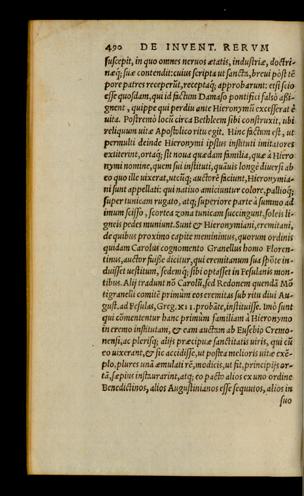 490 DE INVENT. RERVM
suscepit, in quo omnes neruos ætatis, industriæ, doctri-
næq; suæ contendit: cuius scripta ut sancta, breui pòst tẽ
pore patres receperũt, receptaq; approbarunt: etsi scio
esse quosdam, qui id factum Damaso pontifici falsò asi-
gnent, quippe qui perdiu ante Hieronymũ excesserat è
uita. Postremò locũ circa Bethleem sibi construxit, ubi
reliquum uitæ Apostolico ritu egit. Hinc factum est, ut
permulti deinde Hieronymi ipsius instituti imitatores
extiterint, ortaq; sit noua quædam familia, quæ à Hiero
nymi nomine, quem sui instituti, quãuis longè diuersi ab
eo quo ille uixerat, utcũq; auctorẽ faciunt, Hieronymia-
ni sunt appellati: qui natiuo amiciuntur colore, pallioq;
super tunicam rugato, atq; superiore parte à summo ad
imum scisso, scortea zona tunicam succingunt, soleis li-
gneis pedes muniunt. Sunt & Hieronymiani, eremitani,
de quibus proximo capite meminimus, quorum ordinis
quidam Carolus cognomento Granellus homo Floren-
tinus, auctor fuisse dicitur, qui eremitanum sua spõte in-
duisset uestitum, sedemq; sibi optasset in Fesulanis mon-
tibus. Alij tradunt nõ Carolũ, sed Redonem quendã Mõ
tigranelũ comitẽ primùm eos eremitas sub ritu diui Au-
gust. ad Fesulas, Greg. XII. probãte, instituisse. Imò sunt
qui cõmententur hanc primùm familiam à Hieronymo
in eremo institutam, & eam auctum ab Eusebio Cremo-
nensi, ac plerisq; alijs præcipuæ sanctitatis uiris, qui cũ
eo uixerant, & sic accidisse, ut postea melioris uitæ exẽ-
plo, plures unã æmulati rẽ, modicis, ut fit, principijs or-
tã, sæpius instaurarint, atq; eo pacto alios ex uno ordine
Benedictinos, alios Augustinianos esse sequutos, alios in
suo